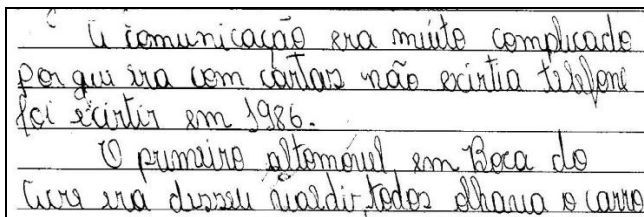 A comunicação era muito complicado
por que era com cartas não existia telefone
foi existir em 1986.
O primeiro altomóvel em Boca do
Acre era desseu Valdir, todos olhava o carro